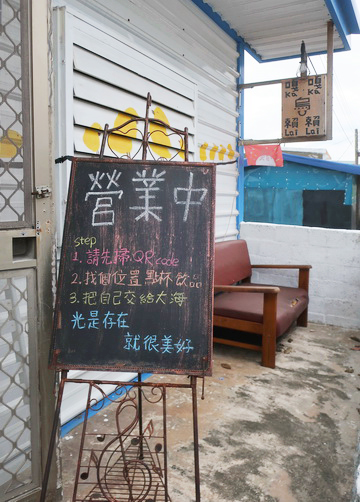 營業中
step
1. 請先掃QR code
2. 找個位置點杯飲品
3. 把自己交給大海
光是存在
就很美好
嘎 嘎
Ka Ka
鳥
賴 賴
Lai Lai